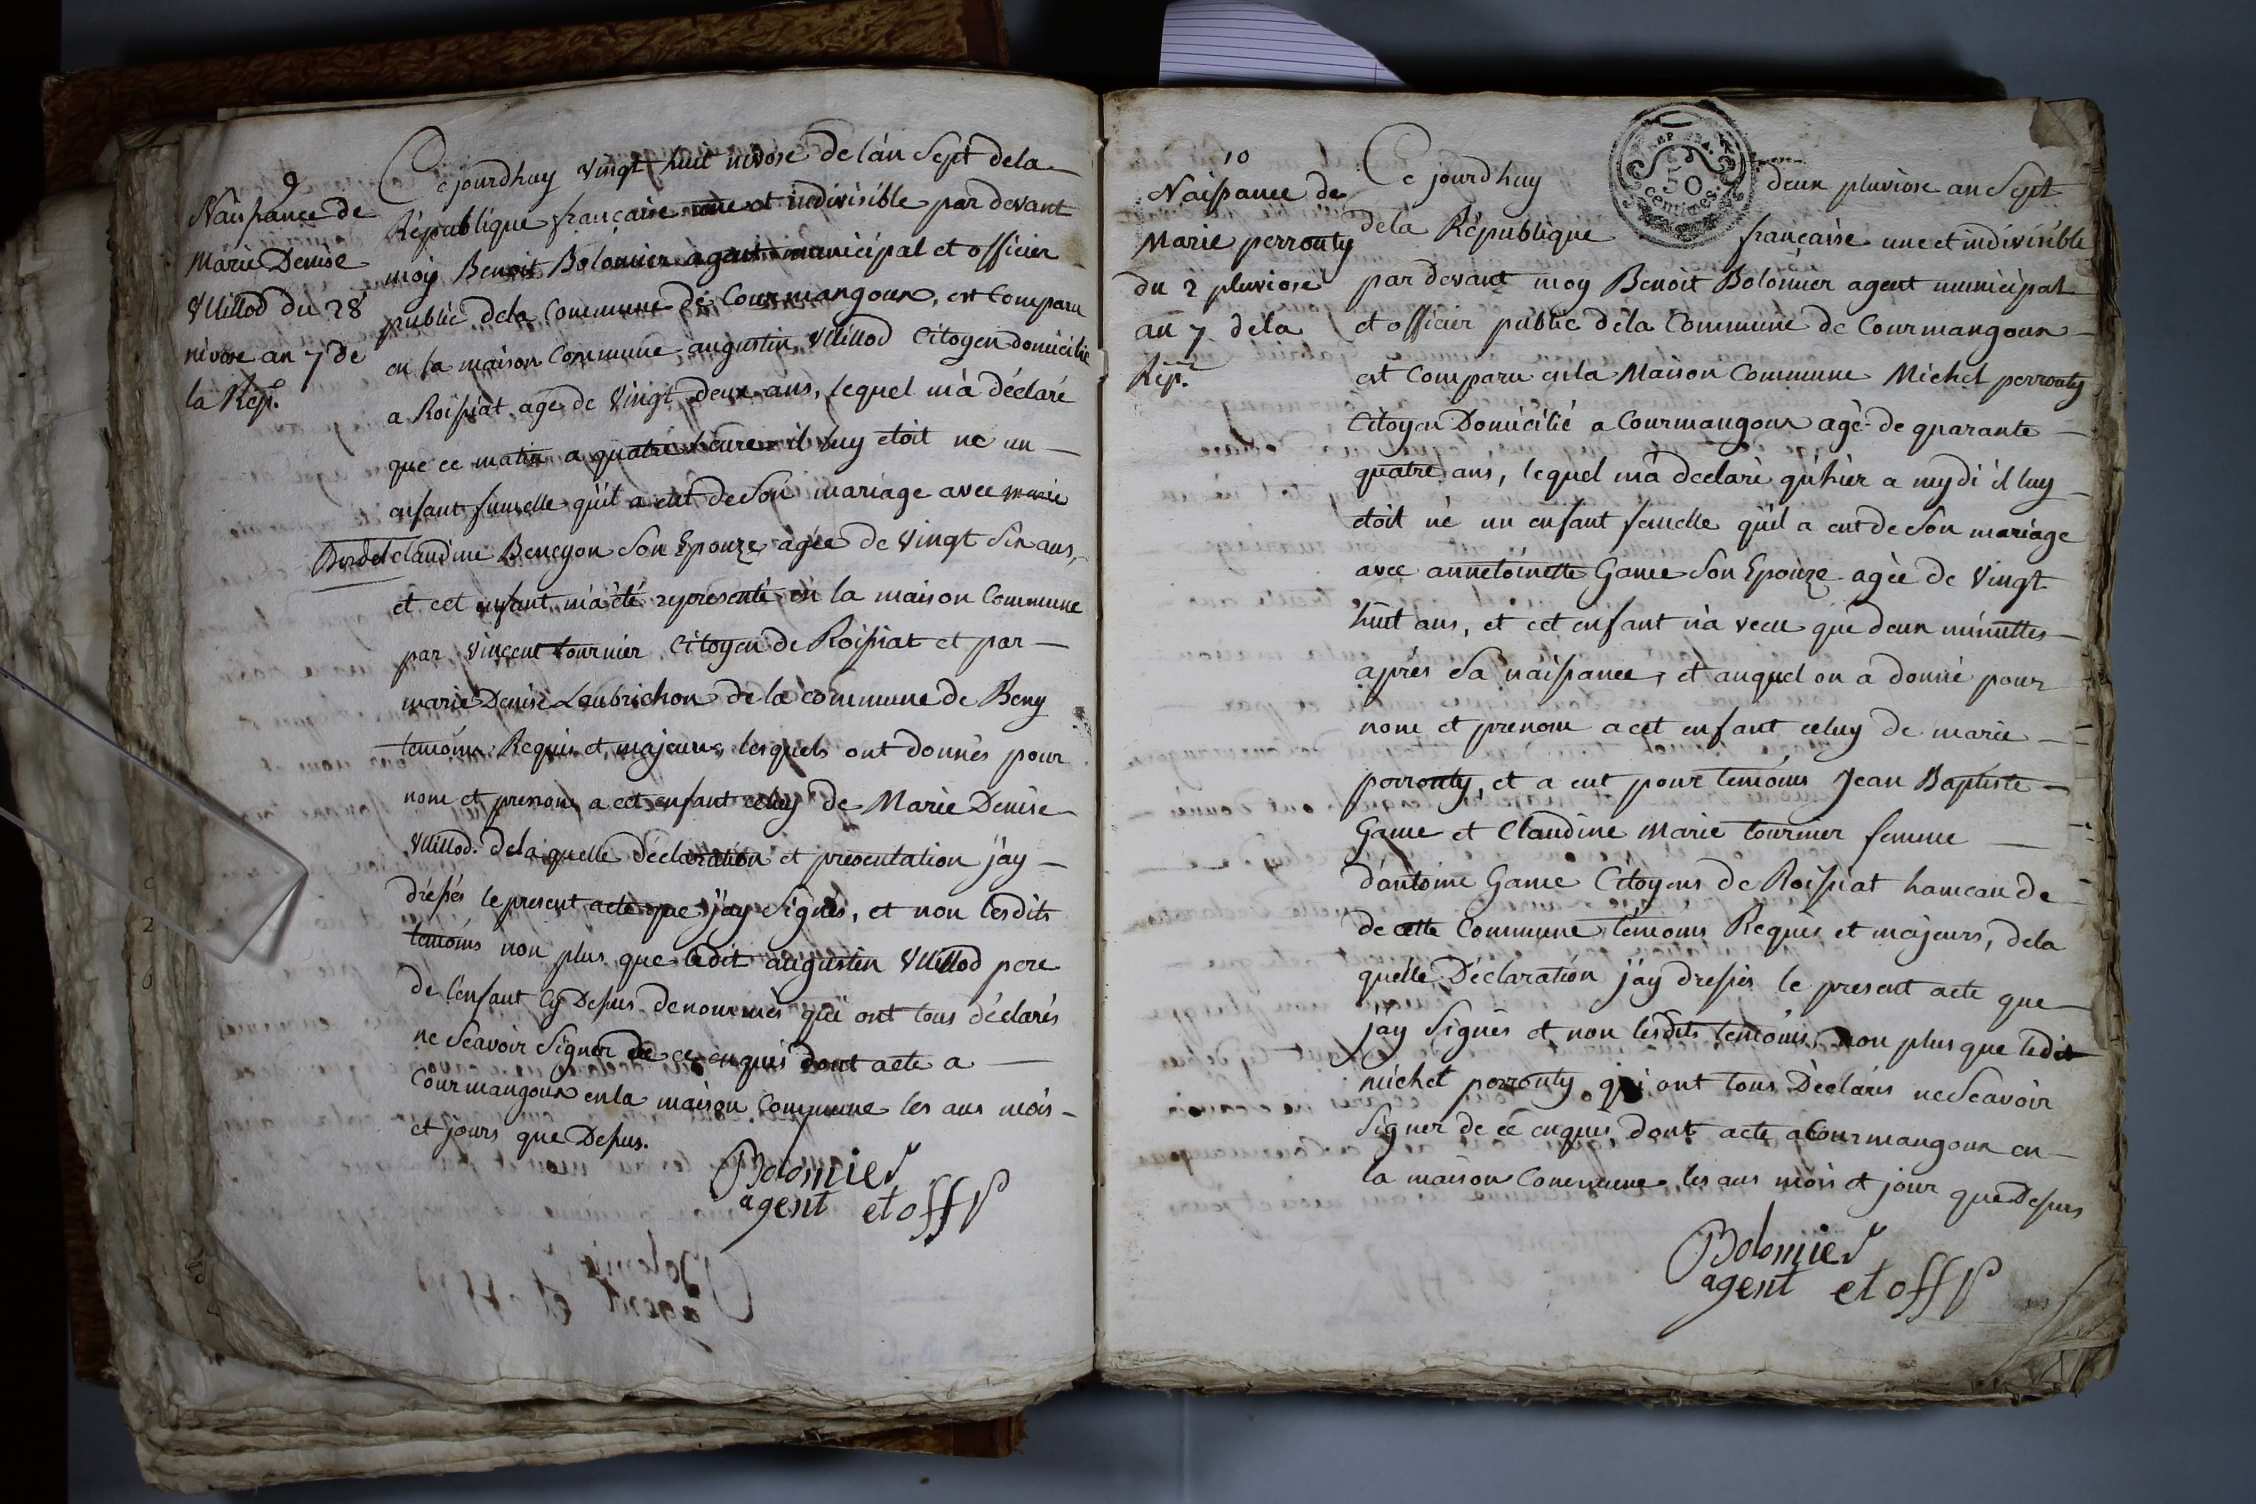 9
Naissance de
Marie Denise
Vuillod du 28
nivose an 7 de
la Rép.
Ce jourdhuy vingt huit nivose de l'an Sept dela
République française une et indivisible par devant
moy Benoit Bolomier agent municipal et officier
public dela Commune de Courmangoux, est Comparu
en la maison Commune augustin Vuillod Citoyen domicilié
a Roissiat agé de vingt deux ans, lequel m'a déclaré
que ce matin a quatre heures il luy etoit né un
enfant fumelle qu'il a eut de son mariage avec marie
claudine Beney­on Son Epouze agée de vingt Six ans,
et cet enfant m'a été representé en la maison Commune
par vincent tournier Citoyen de Roissiat et par
marie Denise Laubrichon de la commune de Beny
temoins Requis et majeurs, lesquels ont donnés pour
nom et prenom a cet enfant celuy de Marie Denise
Vuillod. dela quelle déclaration et presentation j'ay
dréssés le present acte que j'ay Signés, et non lesdits
temoins non plus que ledit augustin Vuillod pere
de l'enfant Cy Dessus denommés qui ont tous déclarés
ne Scavoir Signer de ce enquis dont acte a
Courmangoux en la maison Commune les ans mois
et jours que Dessus.
Bolomier
agent et off p
10
Naissance de
Marie perrouty
du 2 pluviose
an 7 dela
Rép.
REP. FRA.
50
centimes
Ce jourdhuy deux pluviose an Sept
dela République française une et indivisible
par devant moy Benoit Bolomier agent municipal
et officier public dela Commune de Courmangoux
est Comparu en la Maison Commune Michel perrouty
Citoyen Domicilié a Courmangoux agé de quarante
quatre ans, lequel m'a declaré qu'hier a mydi il luy
etoit né un enfant femelle qu'il a eut de Son mariage
avec annetoinette Game Son Epouze agée de Vingt
huit ans, et cet enfant n'a vecu que deux minuttes
après Sa naissance, et auquel on a donné pour
nom et prenom a cet enfant celuy de marie
perrouty, et a eut pour temoins Jean Baptiste
Game et Claudine Marie tournier femme
d'antoine Game Citoyens de Roissiat hameau de
de cette Commune, témoins Requis et majeurs, dela
quelle Déclaration j'ay dressés le present acte que
j'ay Signés et non lesdits temoins, non plus que ledit
michel perrouty qui ont tous Déclarés ne Scavoir
Signer de ce enquis, dont acte a Courmangoux en
la maison Commune, les ans mois et jour que Dessus
Bolomier
agent et off p